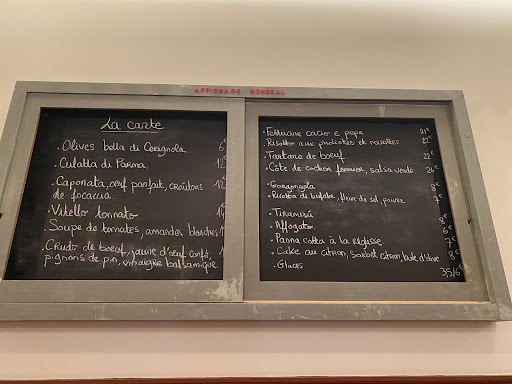 AFFICHAGE GENERAL
La carte
. Olives bella di Cerignola 6€
. Culatta di Parma. 12€
. Caponata, oeuf parfait, croûtons 12€
de focaccia.
. Vitello tonnato
Soupe de tomates, amandes blanches
. Crudo de boeuf, jaune d'oeuf confit,
pignons de pin, vinaigre balsamique
. Fettucine cacio e pepe 21€
. Risotto aux pholiotes et noisettes 22€
. Tartare de boeuf. 22€
. Côte de cochon fermier, salsa verde 24€
. Gorgonzola 8€
. Ricotta di bufala, fleur de sel, poivre 7€
. Tiramisù 8€
. Affogato 6€
. Panna cotta à la réglisse 7€
. Cake au citron, sorbet citron, huile d'olive 8€
. Glaces 3,5/6€